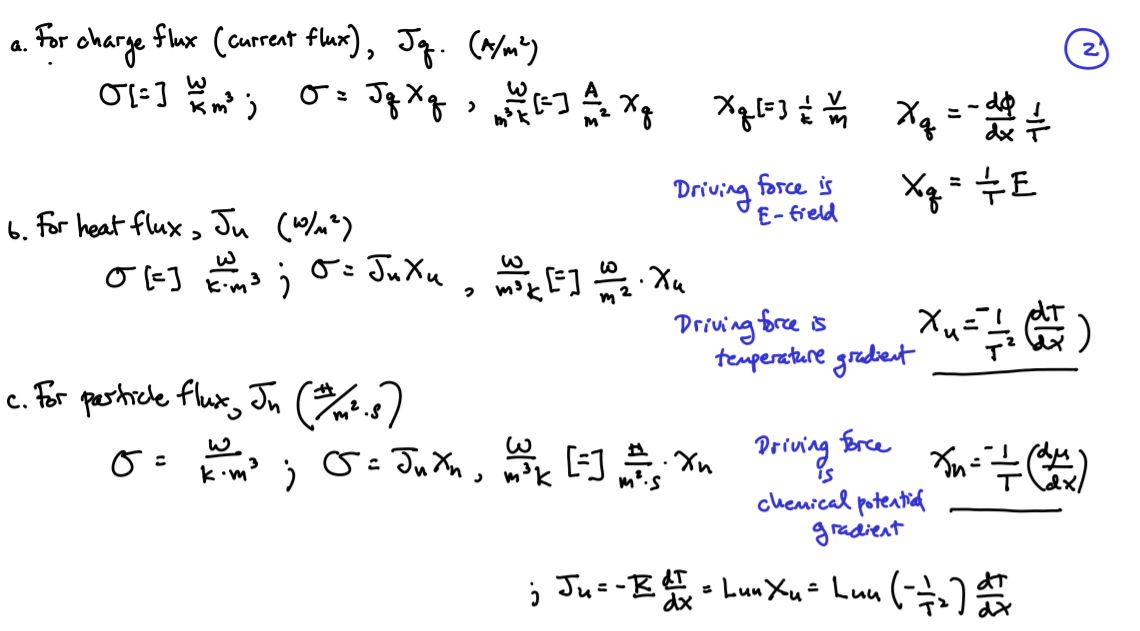 a. For charge flux (current flux), Jq. (A/m²)
2
σ[=] W/K m³ ; σ = Jq Xq , W/m³K [=] A/m² Xq Xq [=] 1/K V/m Xq = -dϕ/dx 1/T
Driving force is
E-field
Xq = 1/T E
b. For heat flux, Ju (W/m²)
σ [=] W/K·m³ ; σ = Ju Xu , W/m³K [=] W/m² · Xu
Driving force is
temperature gradient
Xu = -1/T² (dT/dx)
c. For particle flux, Jn (#/m²·s)
σ = W/K·m³ ; σ = Jn Xn , W/m³K [=] #/m²·s · Xn
Driving force
is
chemical potential
gradient
Xn = -1/T (dμ/dx)
; Ju = -k dT/dx = Luu Xu = Luu (-1/T²) dT/dx